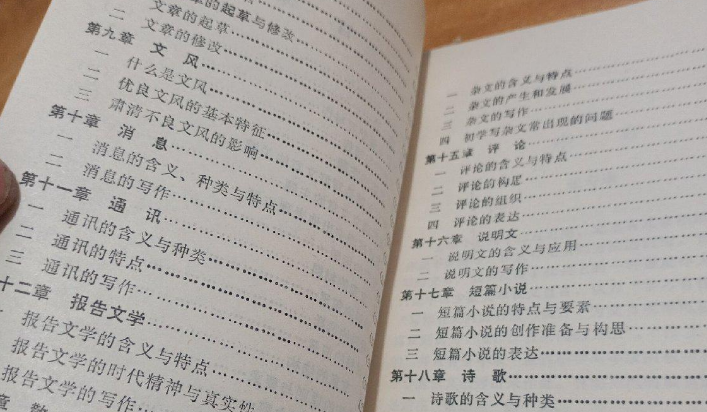 的起草与修改
一 文章的起草
二 文章的修改
第九章 文风
一 什么是文风
二 优良文风的基本特征
三 肃清不良文风的影响
第十章 消息
一 消息的含义、种类与特点
二 消息的写作
第十一章 通讯
一 通讯的含义与种类
二 通讯的特点
三 通讯的写作
十二章 报告文学
报告文学的含义与特点
报告文学的时代精神与真实性
报告文学的写作
章
一 杂文的含义与特点
二 杂文的产生和发展
三 杂文的写作
四 初学写杂文常出现的问题
第十五章 评论
一 评论的含义与特点
二 评论的构思
三 评论的组织
四 评论的表达
第十六章 说明文
一 说明文的含义与应用
二 说明文的写作
第十七章 短篇小说
一 短篇小说的特点与要素
二 短篇小说的创作准备与构思
三 短篇小说的表达
第十八章 诗歌
一 诗歌的含义与种类